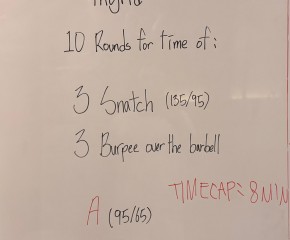 Ingrid
10 Rounds for time of:
3 Snatch (135/95)
3 Burpee over the barbell
TIMECAP: 8MIN
A (95/65)